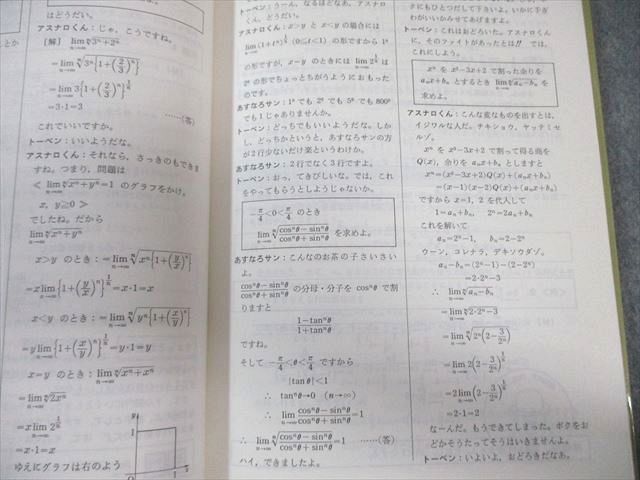 とか
はどうだい。
アスナロくん：じゃ，こうですね。
［解］ lim ⁿ√3ⁿ+2ⁿ
n→∞
=lim ⁿ√3ⁿ{1+(2/3)ⁿ}
n→∞
=lim 3{1+(2/3)ⁿ}^(1/n)
n→∞
=3·1=3 ……(答)
これでいいですか。
トーベン：いいようだな。
アスナロくん：それなら，さっきのもできま
すね。つまり，問題は
< lim ⁿ√xⁿ+yⁿ=1 のグラフをかけ。
n→∞
x, y≧0 >
でしたね。だから
lim ⁿ√xⁿ+yⁿ
n→∞
x>y のとき：=lim ⁿ√xⁿ{1+(y/x)ⁿ}
n→∞
=x lim{1+(y/x)ⁿ}^(1/n)=x·1=x
n→∞
x<y のとき：=lim ⁿ√yⁿ{1+(x/y)ⁿ}
n→∞
=y lim{1+(x/y)ⁿ}^(1/n)=y·1=y
n→∞
x=y のとき：lim ⁿ√xⁿ+xⁿ
n→∞
=lim ⁿ√2xⁿ
n→∞
=x lim 2^(1/n)
n→∞
=x·1=x
ゆえにグラフは右のよう
y
1
1
トーベン：うーん，なるほどなあ。アスナロく
ん，どうだい。
アスナロくん：x>y と x<y の場合には
lim(1+tⁿ)^(1/n) (0≦t<1) の形ですから 1⁰
n→∞
の形ですが，x=y のときには lim 2^(1/n) は
n→∞
2⁰ の形でちょっとちがうようにおもった
のです。
あすなろサン：1⁰ でも 2⁰ でも 5⁰ でも 800⁰
でも 1 じゃありませんか。
トーベン：どっちでもいいようだな。しか
し，どっちかというと，あすなろサンの方
が2行少ないだけ楽というわけか。
あすなろサン：2行でなく3行ですよ。
トーベン：おっ，てきびしいな。では，これ
をやってもらうとしようじゃないか。
-π/4<θ<π/4 のとき
lim ⁿ√(cosⁿθ-sinⁿθ)/(cosⁿθ+sinⁿθ) を求めよ。
n→∞
あすなろサン：こんなのお茶の子さいさい
よ。
(cosⁿθ-sinⁿθ)/(cosⁿθ+sinⁿθ) の分母・分子を cosⁿθ で割
りますと
(1-tanⁿθ)/(1+tanⁿθ)
ですね。
そして -π/4<θ<π/4 ですから
|tanθ|<1
∴ tanⁿθ→0 (n→∞)
∴ lim (cosⁿθ-sinⁿθ)/(cosⁿθ+sinⁿθ)=1
n→∞
∴ lim ⁿ√(cosⁿθ-sinⁿθ)/(cosⁿθ+sinⁿθ)=1 ……(答)
n→∞
ハイ，できましたよ。
にもひとつだして下さいよ。いかに手ぎ
わがいいかみせてあげますよ。
トーベン：これはおどろいた。アスナロくん
に，そのファイトがあったとは!! では，
これにしよう。
xⁿ を x²-3x+2 で割った余りを
aₙx+bₙ とするとき lim ⁿ√aₙ-bₙ を
n→∞
求めよ。
アスナロくん：こんな変なものを出すとは，
イジワルな人だ。チキショウ，ヤッテミセ
ルゾ。
xⁿ を x²-3x+2 で割って得る商を
Q(x)，余りを aₙx+bₙ としますと
xⁿ=(x²-3x+2)Q(x)+(aₙx+bₙ)
=(x-1)(x-2)Q(x)+(aₙx+bₙ)
ですから x=1, 2 を代入して
1=aₙ+bₙ, 2ⁿ=2aₙ+bₙ
これを解いて
aₙ=2ⁿ-1, bₙ=2-2ⁿ
ウーン，コレナラ，デキソウダゾ。
aₙ-bₙ=(2ⁿ-1)-(2-2ⁿ)
=2·2ⁿ-3
∴ lim ⁿ√aₙ-bₙ
n→∞
=lim ⁿ√2·2ⁿ-3
n→∞
=lim ⁿ√2ⁿ(2-3/2ⁿ)
n→∞
=lim 2(2-3/2ⁿ)^(1/n)
n→∞
=2 lim(2-3/2ⁿ)^(1/n)
n→∞
=2·1=2
なーんだ。もうできてしまった。ボクをお
どかそうたってそうはいきませんよ。
トーベン：いよいよ，おどろきだなあ。